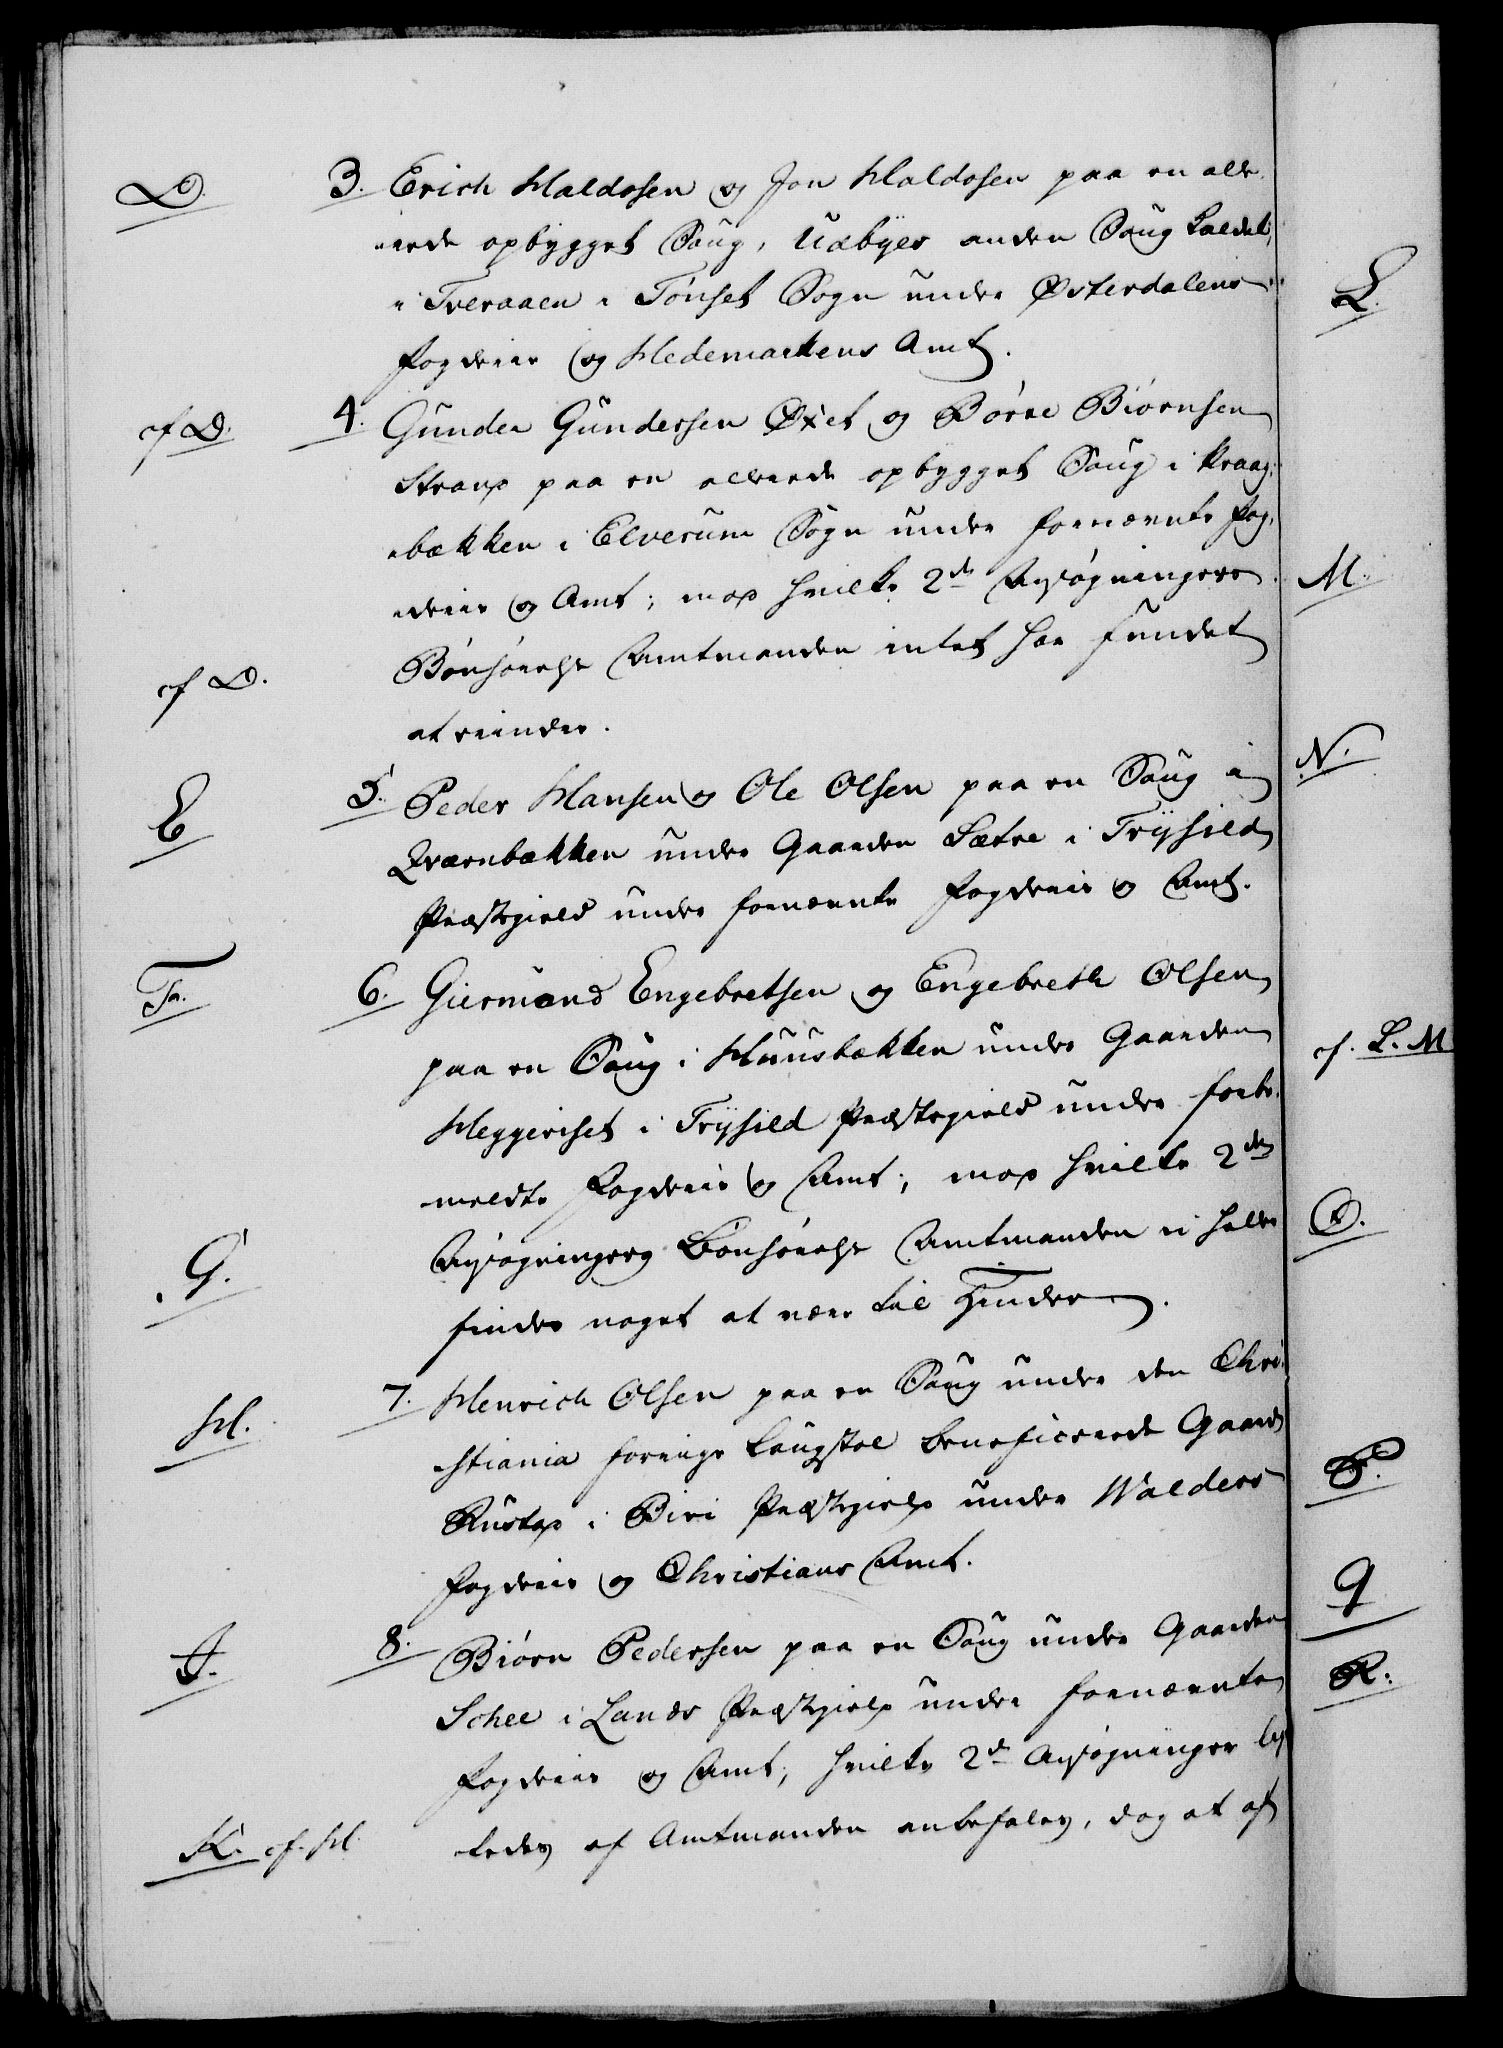 D. 3. Erich Haldosen og Jon Haldosen paa en alle-
rede opbygget Saug, Udbyes anden Saug kaldet,
i Tveraaen i Tönset Sogn under Østerdalens
Fogderie og Hedemarkens Amt.
cf D. 4. Gunder Gundersen Øxet og Börre Biörnsen
Strand paa en allerede opbygget Saug i Kraag-
bækken i Elverum Sogn under fornævnte Fog-
derie og Amt; mod hvilke 2de Ansøgningers
cf D. Bönhörelse Amtmanden intet har fundet
at erindre.
E 5. Peder Hansen og Ole Olsen paa en Saug i
Qværnbækken under Gaarden Sætre i Trysild
Præstegield under fornævnte Fogderie og Amt.
F. 6. Giermund Engebretsen og Engebreth Olsen
paa en Saug i Huusbækken under Gaarden
Heggeriset i Trysild Præstegield under forbe-
meldte Fogderie og Amt; mod hvilke 2de
G. Ansøgningers Bönhörelse Amtmanden ei heller
finder noget at være til Hinder.
H. 7. Henrich Olsen paa en Saug under den Chri-
stiania forrige Laugstoel beneficerede Gaard
Rustad i Biri Præstegield under Walders
Fogderie og Christians Amt.
J. 8. Biörn Pedersen paa en Saug under Gaarden
Schee i Lands Præstegield under fornævnte
Fogderie og Amt; hvilke 2de Ansøgninger lige-
K. cf. H. ledes af Amtmanden anbefales, dog at af
L.
M.
N.
cf. L. M
O.
P.
Q
R.